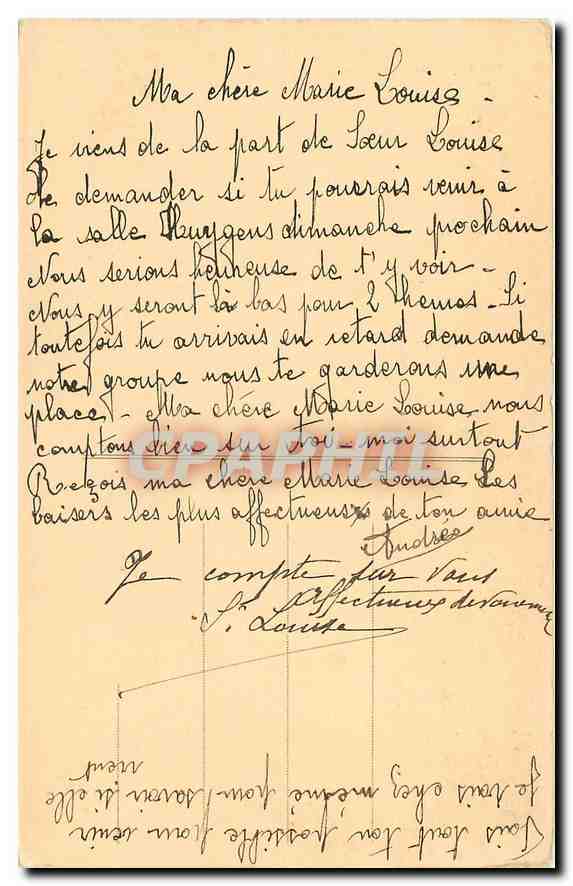 Ma chère Marie Louise -
Je viens de la part de Sœur Louise
de demander si tu pourrais venir à
la salle Huygens dimanche prochain
Nous serions heureuse de t'y voir -
Nous y seront là bas pour 2 heures - Si
toutefois tu arrivais en retard demande
notre groupe nous te garderons une
place - Ma chère Marie Louise nous
comptons bien sur toi - moi surtout
Reçois ma chère Marie Louise les
baisers les plus affectueux de ton amie
Andrée
Je compte sur vous
affectueux
Sr Louise
CPAPHIL
Fais tout ton possible pour venir
je vais chez mémé pour savoir si elle
vient